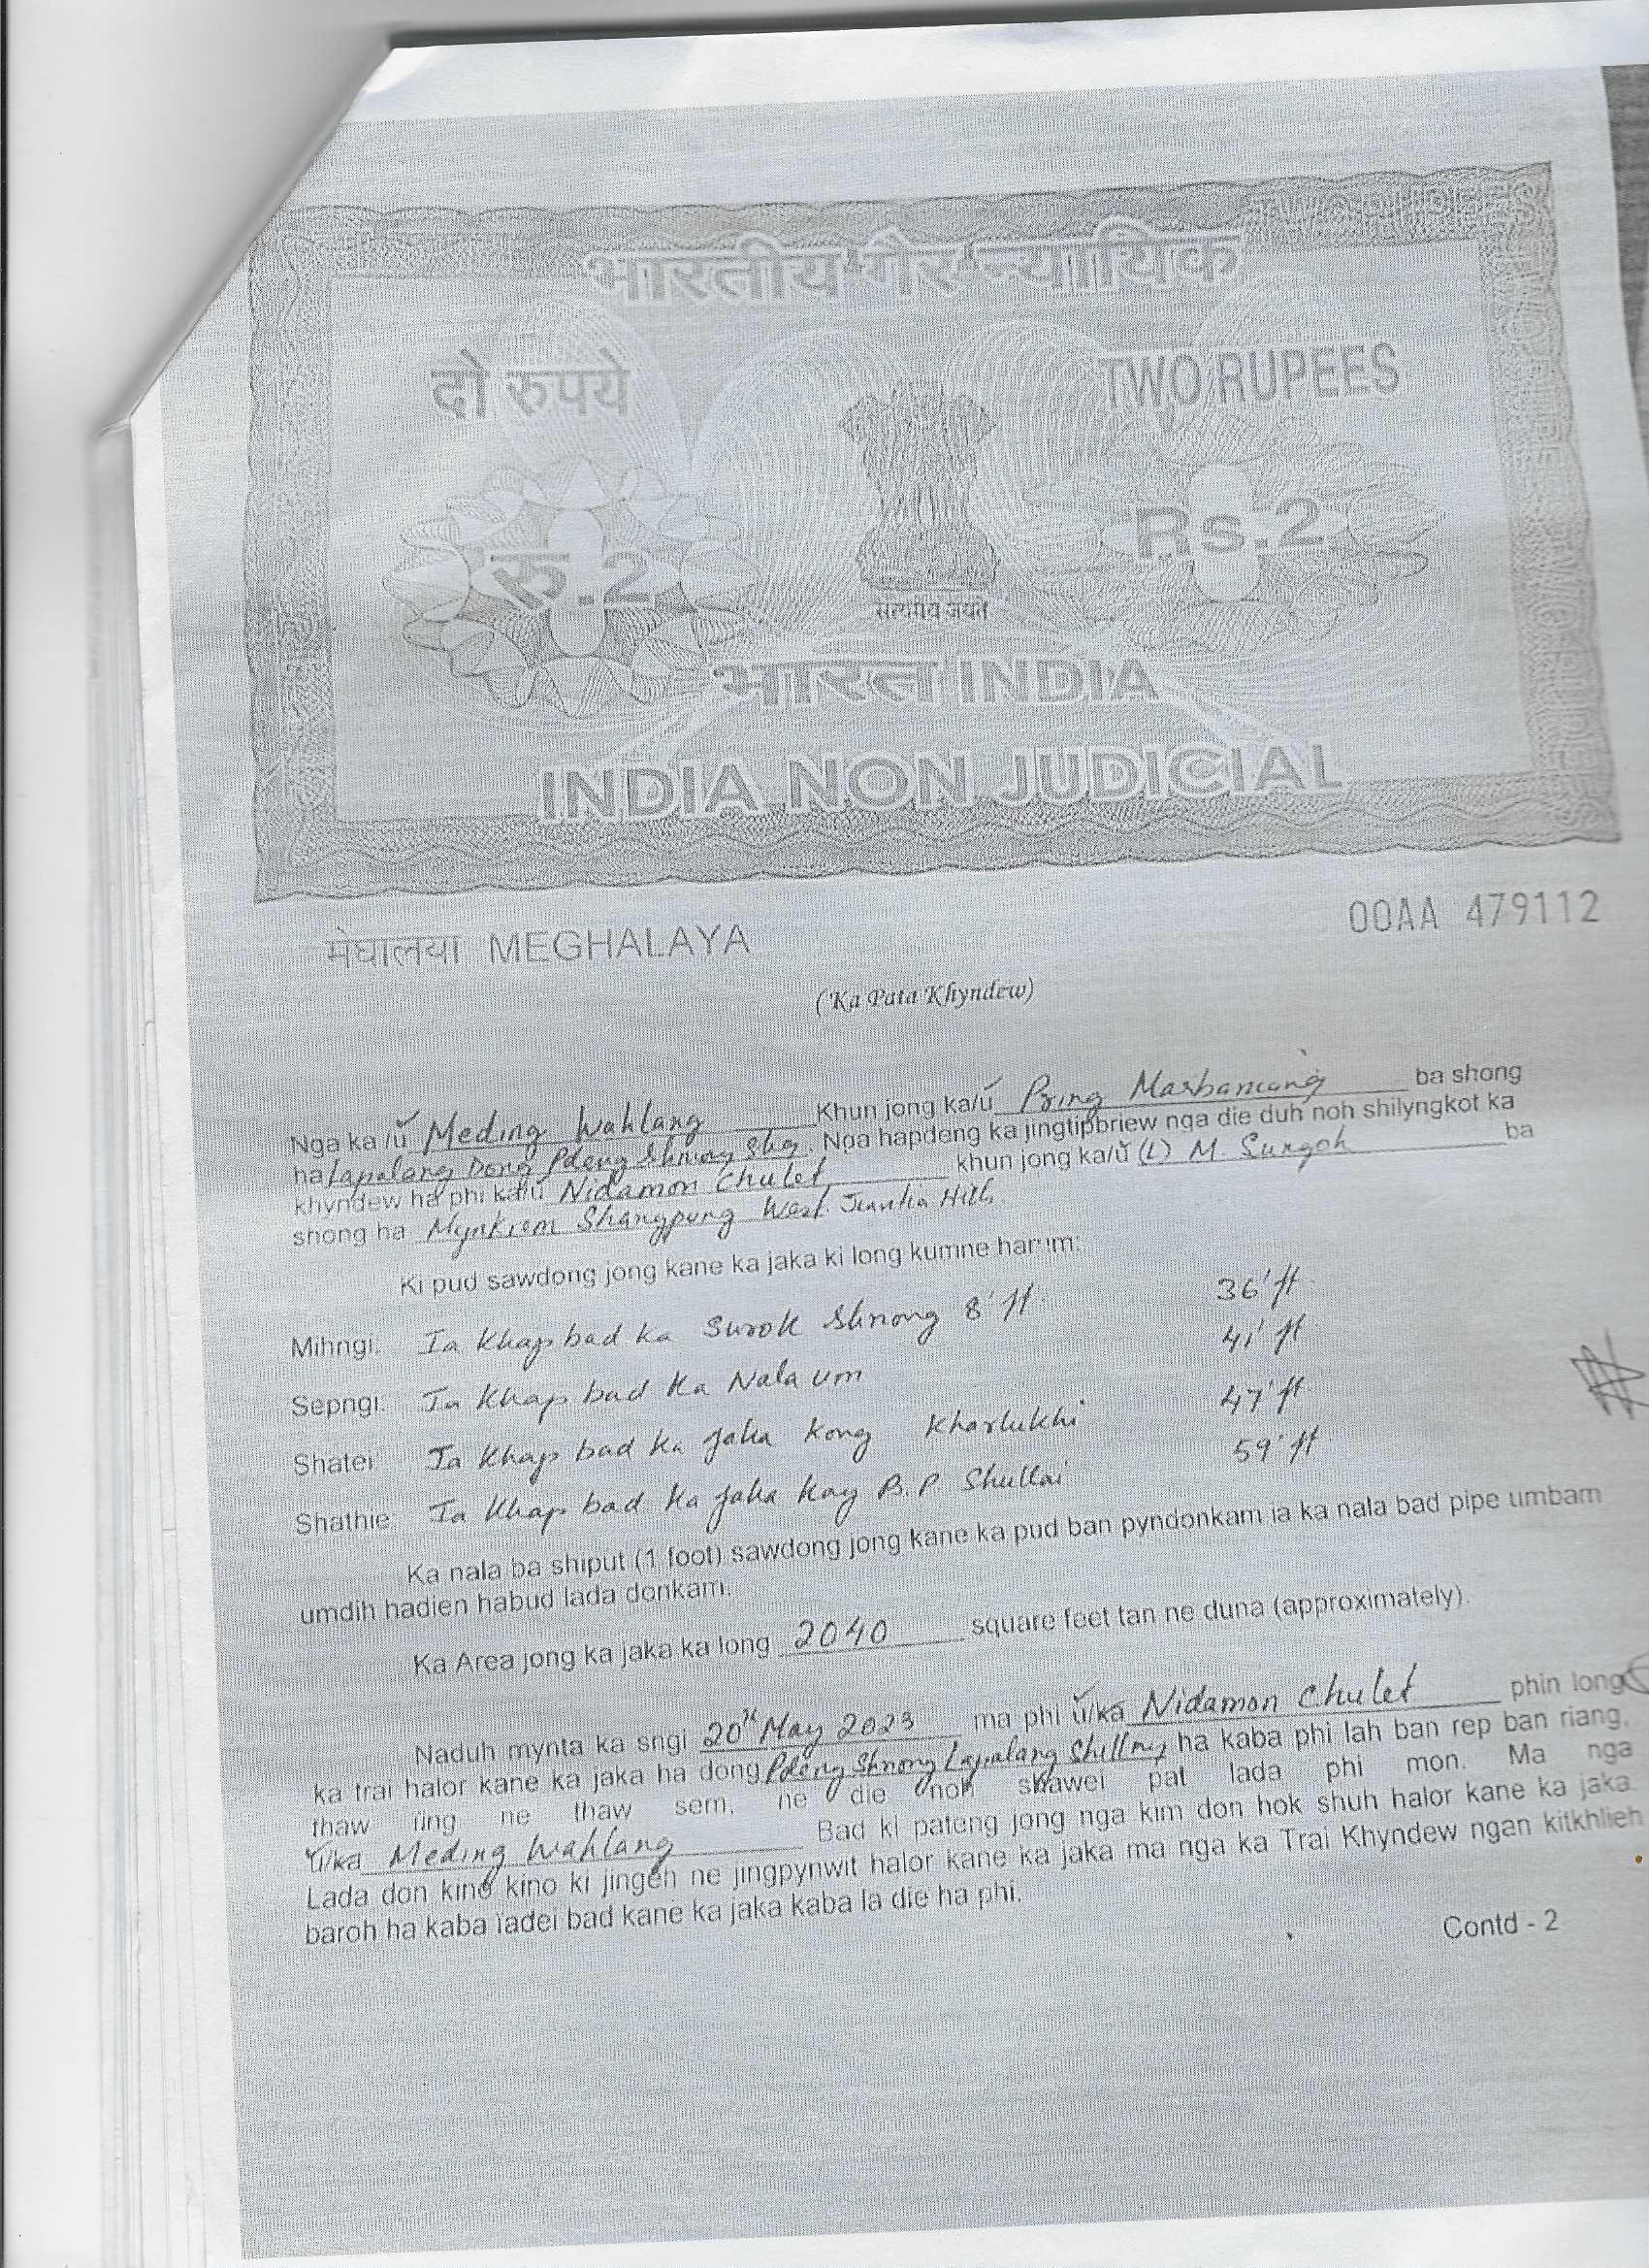 भारतीय गैर न्यायिक
दो रुपये TWO RUPEES
रु.2 Rs.2
सत्यमेव जयते
भारत INDIA
INDIA NON JUDICIAL
मेघालया MEGHALAYA 00AA 479112
(Ka Pata Khyndew)
Nga ka/ŭ Meding Wahlang Khun jong ka/ú Pring Marbaniang ba shong
ha Lapalang Dong Pdeng Shnong Shg. Nga hapdeng ka jingtipbriew nga die duh noh shilyngkot ka
khyndew ha phi ka/ŭ Nidamon Chulet khun jong ka/ŭ (L) M. Sungoh ba
shong ha Mynkrem Shangpung West Jaintia Hills
Ki pud sawdong jong kane ka jaka ki long kumne harum:
Mihngi: Ia Khap bad ka Surok Shnong 8' ft. 36' ft
Sepngi: Ia Khap bad Ka Nala um 41' ft
Shatei Ia Khap bad ka Jaka Kong Kharlukhi 47' ft
Shathie: Ia Khap bad Ka Jaka Kay B.P. Shullai 59' ft
Ka nala ba shiput (1 foot) sawdong jong kane ka pud ban pyndonkam ia ka nala bad pipe umbam
umdih hadien habud lada donkam.
Ka Area jong ka jaka ka long 2040 square feet tan ne duna (approximately).
Naduh mynta ka sngi 20th May 2023 ma phi ŭ/ka Nidamon Chulet phin long
ka trai halor kane ka jaka ha dong Pdeng Shnong Lapalang Shillong ha kaba phi lah ban rep ban riang,
thaw ïing ne thaw sem, ne die noh shawei pat lada phi mon. Ma nga
ŭ/ka Meding Wahlang Bad ki pateng jong nga kim don hok shuh halor kane ka jaka.
Lada don kino kino ki jingeh ne jingpynwit halor kane ka jaka ma nga ka Trai Khyndew ngan kitkhlieh
baroh ha kaba ïadei bad kane ka jaka kaba la die ha phi.
Contd - 2